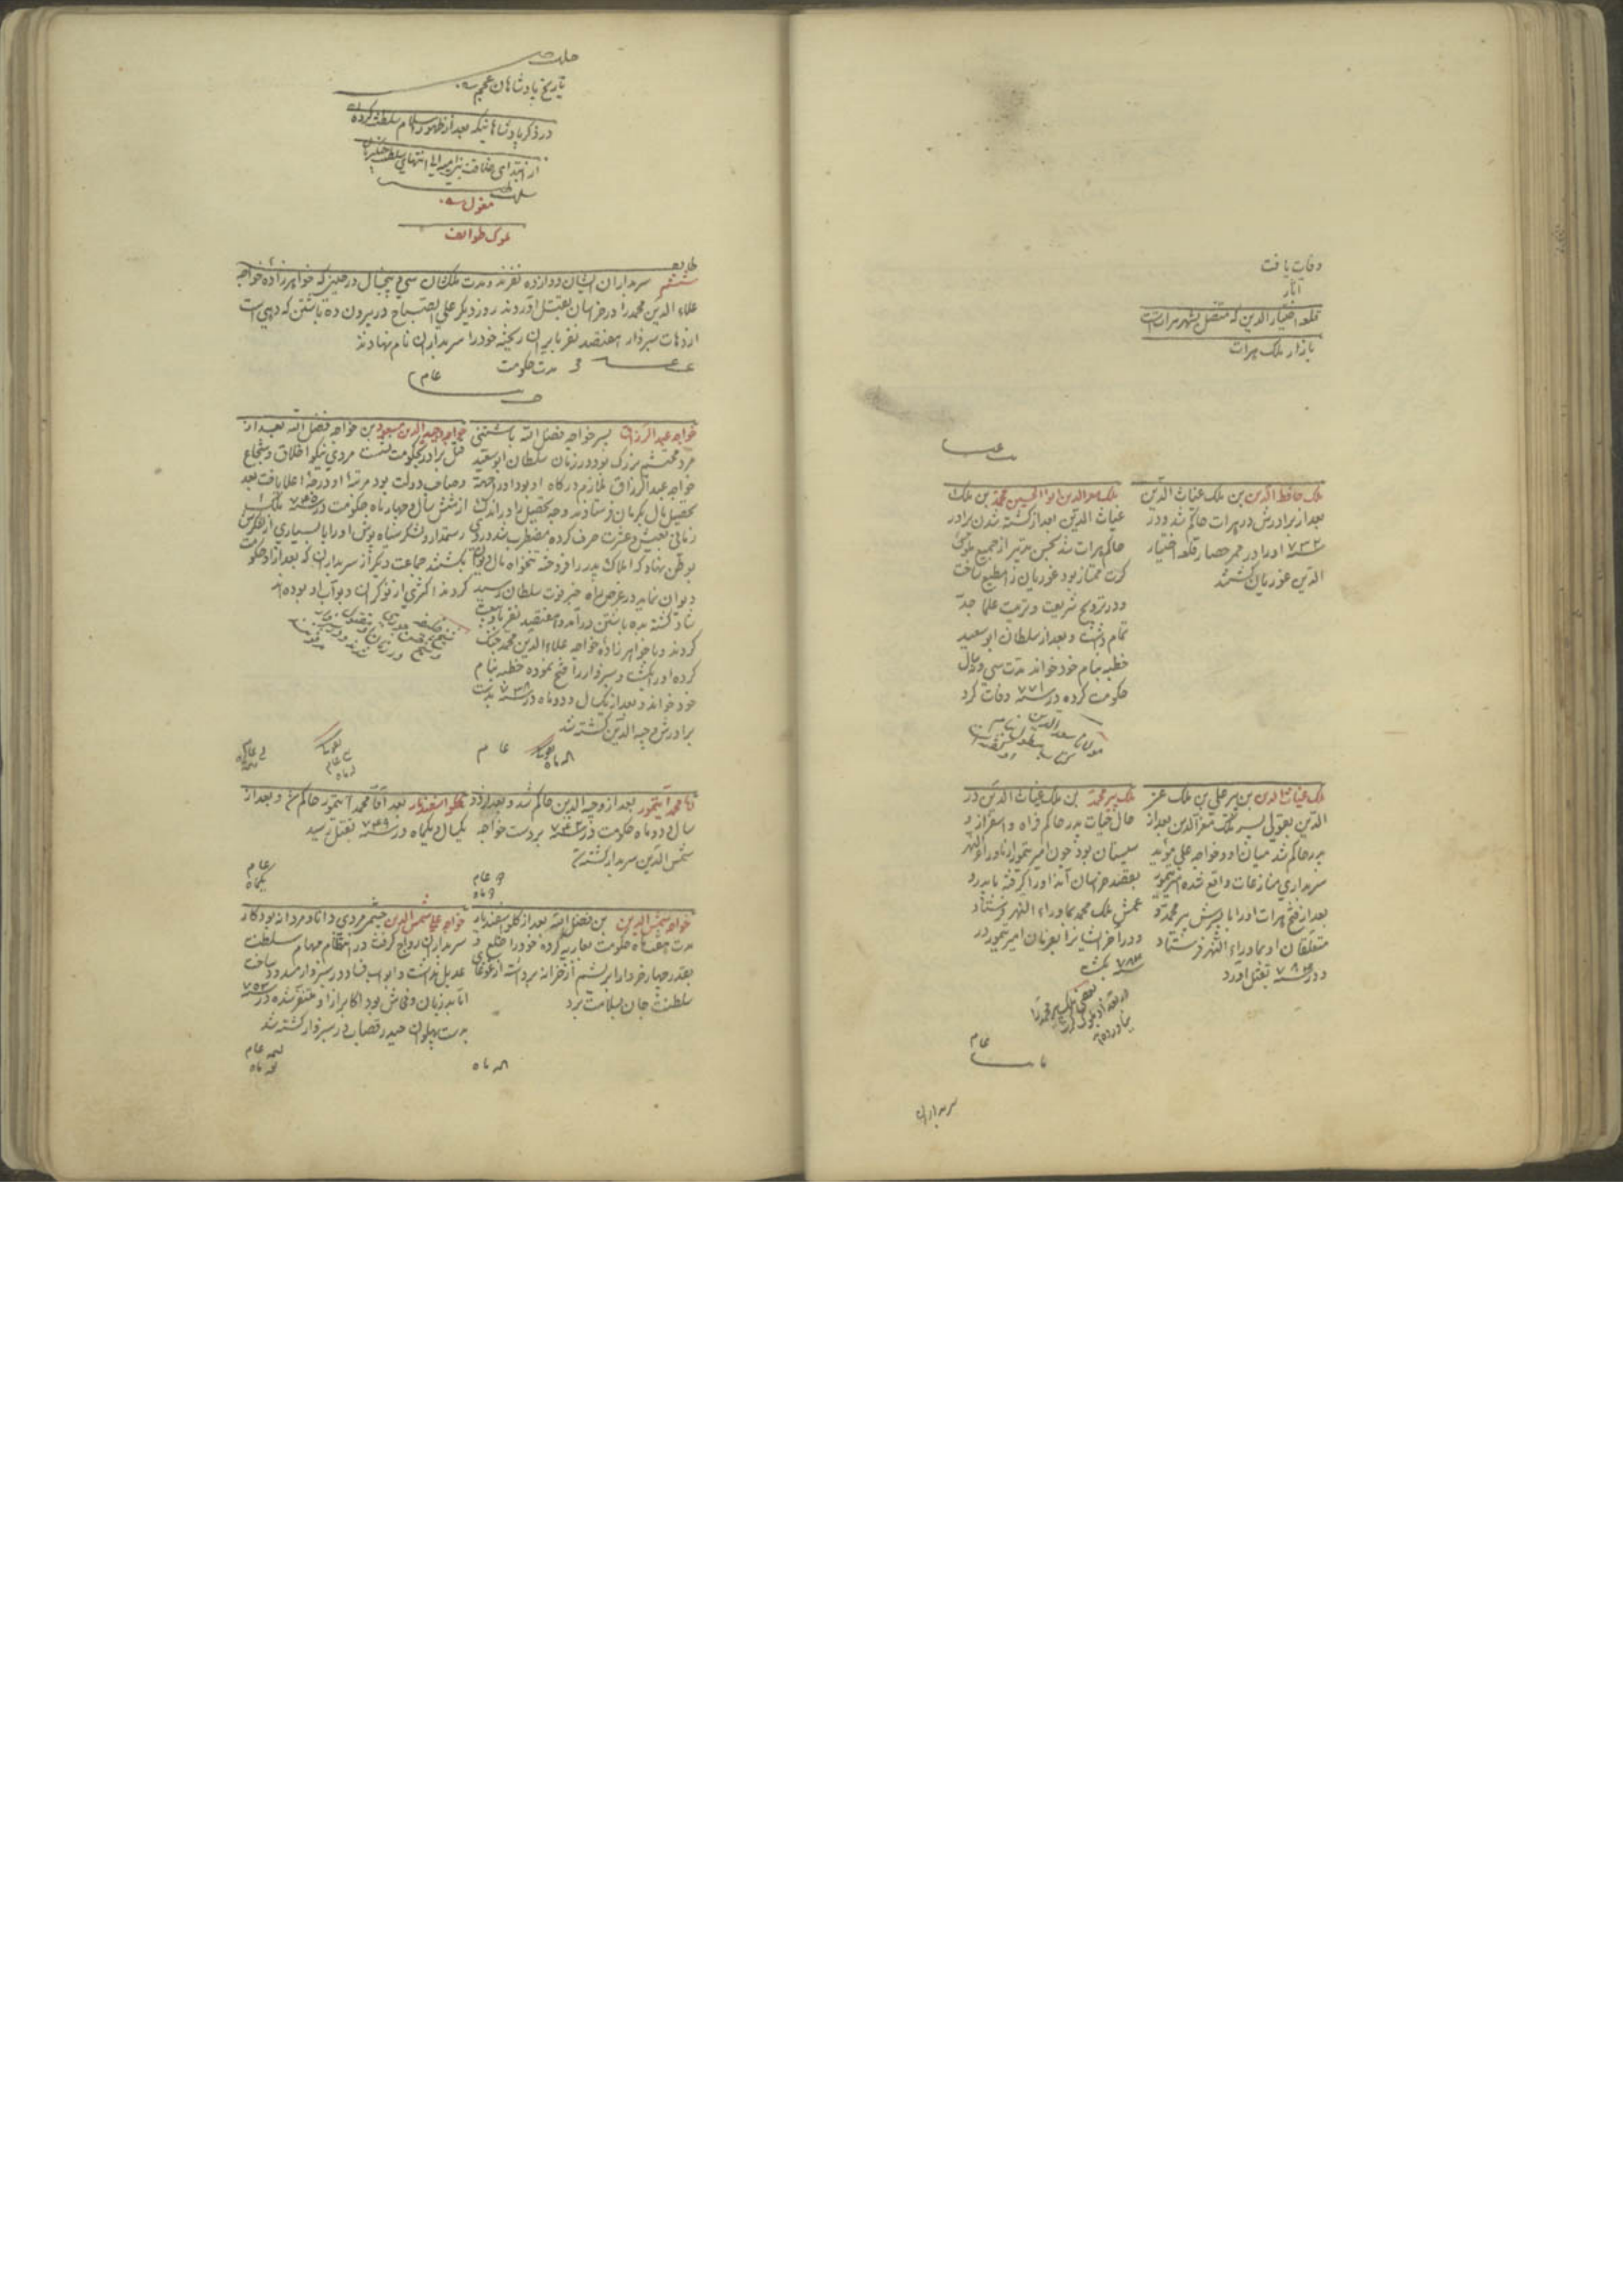 وفات یافت
آثار
قلعه اختیار الدین که متصل بشهر هراتست
بازار ملک هرات
ملک حافظ الدین بن ملک غیاث الدین
بعد از برادرش در هرات حاکم شد و در
سنه ۷۳۲ او را در حصار قلعه اختیار
الدین غوریان کشتند
ملک معز الدین ابو الحسین محمد بن ملک
غیاث الدین بعد از کشته شدن برادر
حاکم هرات شد بحسن تدبیر از جمیع ملوک
کرت ممتاز بود غوریان را مطیع ساخت
و در ترویج شریعت و تربیت علما جد
تمام داشت و بعد از سلطان ابو سعید
خطبه بنام خود خواند مدت سی و سال
حکومت کرده در سنه ۷۷۱ وفات کرد
مولانا سعد الدین
ملک غیاث الدین بن پیر علی بن ملک عز
الدین بقولی پسر ملک معز الدین بعد از
پدر حاکم شد میان او و خواجه علی موید
سربداری منازعات واقع شده امیر تیمور
بعد از فتح هرات او را با پسرش پیر محمد و
متعلقان او بماوراء النهر فرستاد
و در سنه ۷۸۳ بقتل آورد
ملک پیر محمد بن ملک غیاث الدین در
حال حیات پدر حاکم فراه و اسفزار و
سیستان بود چون امیر تیمور از ماوراء النهر
بقصد خراسان آمد او را گرفته با پدر و
عمش ملک محمد بماوراء النهر فرستاد
و در آخر ایشانرا بفرمان امیر تیمور در
سنه ۷۸۳ بکشت
بعضی ملک پیر محمد را
از ملوک کرت
نیاورده
عام
سربداران
تاریخ پادشاهان عجم
در ذکر پادشاهانیکه بعد از ظهور اسلام سلطنت کرده
از ابتدای خلافت بنی امیه الی انتهای سلطنت چنگیزیان
مغول
ملوک طوائف
طایفه
ششم سربداران ایشان دوازده نفرند و مدت ملکشان سی و پنجسال در حینیکه خواهرزاده خواجه
علاء الدین محمد را در خراسان بقتل آوردند روز دیگر علی الصباح در بیرون ده باشتین که دهی است
از دهات سبزوار هفتصد نفر بایران ریخته خود را سربداران نام نهادند
مدت حکومت
عام
خواجه عبد الرزاق پسر خواجه فضل الله باشتنی
مرد محتشم بزرگ بود در زمان سلطان ابو سعید
خواجه عبد الرزاق ملازم درگاه او بود او را بجهة
تحصیل مال بکرمان فرستادند وجه تحصیل را در اندک
زمانی بعیش و عشرت صرف کرده مضطرب شد و روی
بوطن نهاد که املاک پدر را فروخته تنخواه مال دیوان
دیوان نماید در عرض راه خبر فوت سلطان رسید
شاد گشته بده باشتین در آمد و هفتصد نفر با او بیعت
کردند و با خواهر زاده خواجه علاء الدین محمد جنگ
کرده او را بکشت و سبزوار را فتح نموده خطبه بنام
خود خواند و بعد از یکسال و دو ماه در سنه ۷۳۸ بدست
برادرش وجیه الدین کشته شد
خواجه وجیه الدین مسعود بن خواجه فضل الله بعد از
قتل برادر بحکومت نشست مردی نیکو اخلاق و شجاع
و صاحب دولت بود مرتبه او درجه اعلا یافت بعد
از شش سال و چهار ماه حکومت در سنه ۷۴۵ ملک
رستمدار و لشکر سیاه پوش او را با بسیاری از لشکرش
بکشتند جماعت دیگر از سربداران که بعد از او حکومت
کردند اکثری از نوکران و بواب او بوده اند
عام
آقا محمد آیتمور بعد از وجیه الدین حاکم شد و بعد از دو
سال و دو ماه حکومت در سنه ۷۴۷ بر دست خواجه
شمس الدین سربدار کشته شد
کلو اسفندیار بعد آقا محمد آیتمور حاکم شد و بعد از
یکسال و یکماه در سنه ۷۴۹ بقتل رسید
عام
یکماه
خواجه شمس الدین بن فضل الله بعد از کلو اسفندیار
مدت هفت ماه حکومت بعاریه کرده خود را خلع و
بقدر چهار خروار ابریشم از خزانه برداشته از غوغای
سلطنت جان بسلامت برد
خواجه علی شمس الدین چشمی مردی دانا و مردانه بود کار
سربداران رواج گرفت در انتظام مهام سلطنت
عدیل نداشت و ابواب فساد در سبزوار مسدود ساخت
اما بد زبان و فحاش بود اکابر از او متنفر شده در سنه ۷۵۳
بدست پهلوان حیدر قصاب در سبزوار کشته شد
عام
ماه